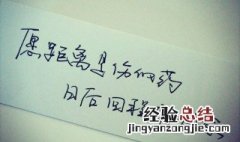 愿距离是伤的药
日后回程
经验总结
jingyanzongjie.com